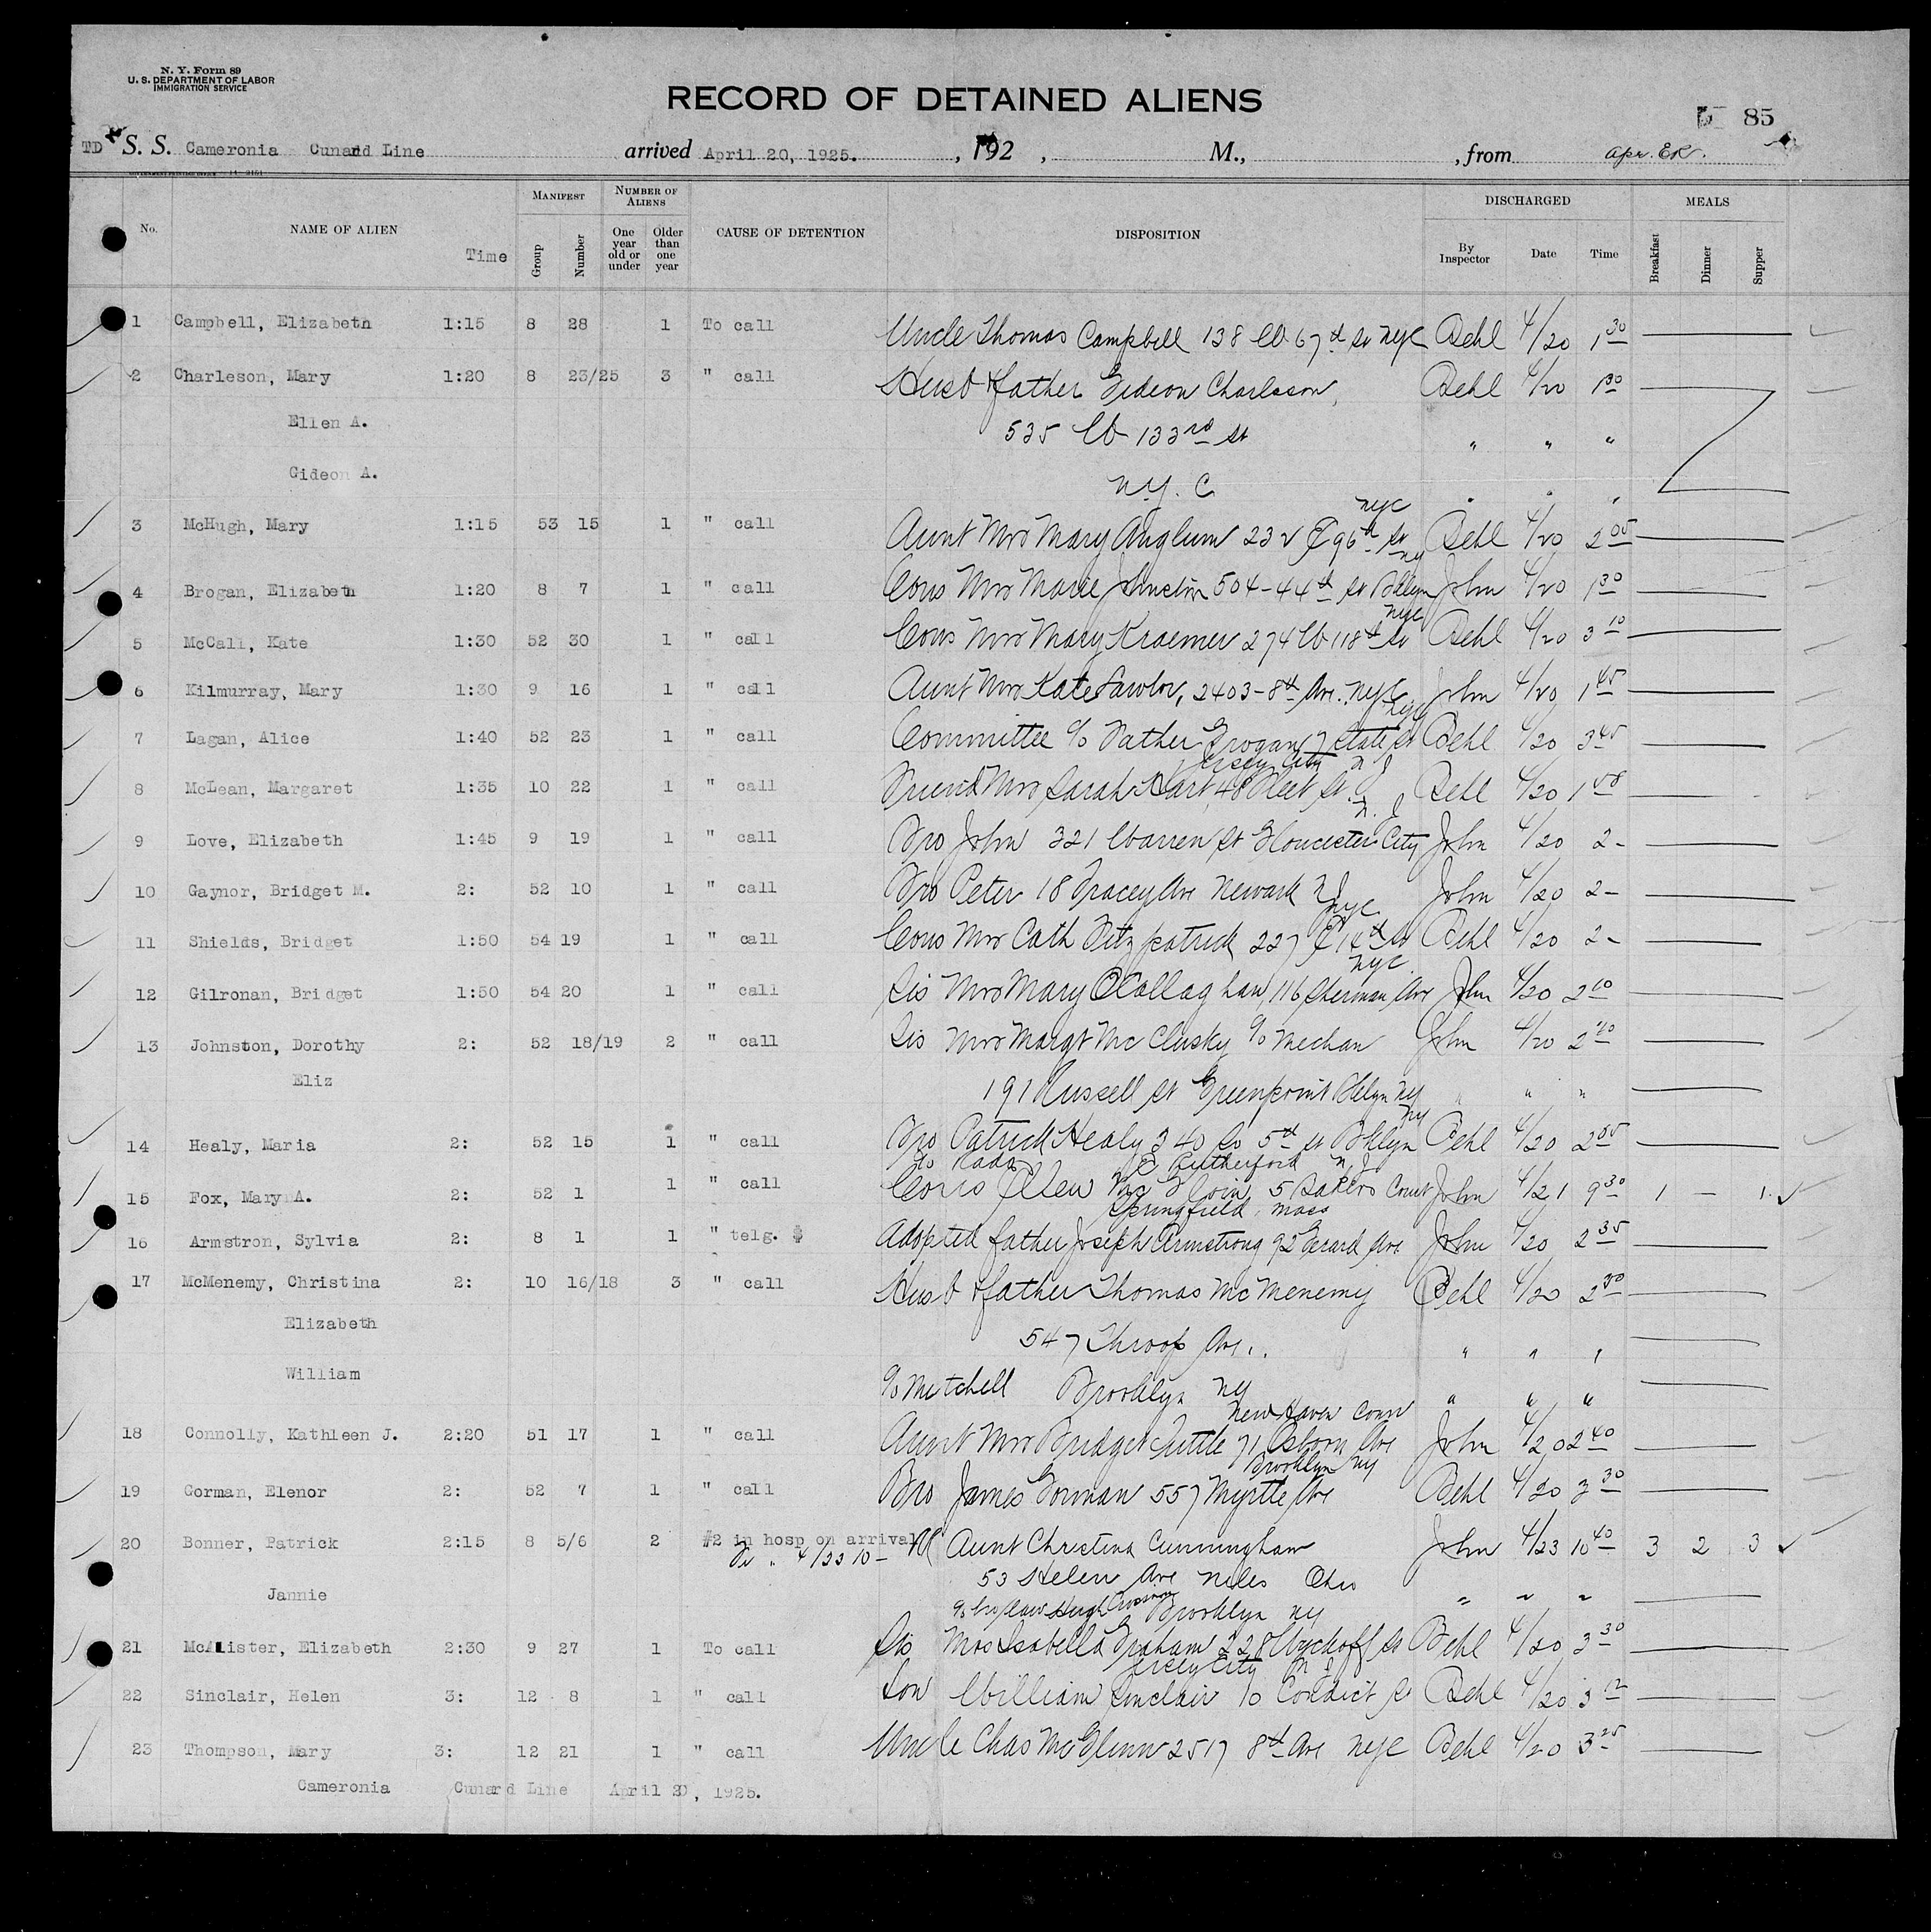 N. Y. Form 89
U. S. DEPARTMENT OF LABOR
IMMIGRATION SERVICE
RECORD OF DETAINED ALIENS
85
TD S. S. Cameronia Cunard Line arrived April 20, 1925. , 192 , M., , from Apr.
No. NAME OF ALIEN Time MANIFEST Group Number NUMBER OF ALIENS One year old or under Older than one year CAUSE OF DETENTION DISPOSITION DISCHARGED By Inspector Date Time MEALS Breakfast Dinner Supper
1 Campbell, Elizabeth 1:15 8 28 1 To call Uncle Thomas Campbell 138 W 67th St NYC Behl 4/20 1 30
2 Charleson, Mary 1:20 8 23/25 3 " call Husb & father Gideon Charlsson, Behl 4/20 1 30
Ellen A. 535 W 133rd St " " "
Gideon A. N.Y. C " " "
NYC
3 McHugh, Mary 1:15 53 15 1 " call Aunt Mrs Mary Anglum 232 E 96th St Behl 4/20 2 05
NY
4 Brogan, Elizabeth 1:20 8 7 1 " call Cous Mrs Marie Johnston 504-44th St Bklyn John 4/20 1 30
NYC
5 McCall, Kate 1:30 52 30 1 " call Cous Mrs Mary Kraemer 274 W 118th St Behl 4/20 3 10
6 Kilmurray, Mary 1:30 9 16 1 " call Aunt Mrs Kate Lawlor, 2403-8th Ave. NYC John 4/20 1 45
NYC
7 Lagan, Alice 1:40 52 23 1 " call Committee c/o Father Grogan 7 State St Behl 4/20 3 45
Jersey City N J
8 McLean, Margaret 1:35 10 22 1 " call Friend Mrs Sarah Hart, 48 Fleet St. Behl 4/20 1 58
N. J
9 Love, Elizabeth 1:45 9 19 1 " call Bro John 321 Warren St Gloucester City John 4/20 2-
10 Gaynor, Bridget M. 2: 52 10 1 " call Bro Peter 18 Tracey Ave Newark N J John 4/20 2-
NYC
11 Shields, Bridget 1:50 54 19 1 " call Cous Mrs Cath Fitzpatrick 227 E 14th St Behl 4/20 2-
NYC
12 Gilronan, Bridget 1:50 54 20 1 " call Sis Mrs Mary OCallaghan, 116 Sherman Ave John 4/20 2 10
13 Johnston, Dorothy 2: 52 18/19 2 " call Sis Mrs Margt Mc Clusky c/o Mechan John 4/20 2 40
Eliz 191 Russell St Greenpoint Bklyn NY " " "
NY
14 Healy, Maria 2: 52 15 1 " call Bro Patrick Healy 340 So 5th St Bklyn Behl 4/20 2 05
E Rutherford N J
15 Fox, Mary A. 2: 52 1 1 " call Cous Ellen 5 Bakers Court John 4/21 9 30 1 - 1
Springfield Mass
16 Armstron, Sylvia 2: 8 1 1 " telg. $ Adopted father Joseph Armstrong 92 Gerard Ave John 4/20 2 35
17 McMenemy, Christina 2: 10 16/18 3 " call Husb & father Thomas McMenemy Behl 4/20 2 50
Elizabeth 547 Throop Ave. " " "
William c/o Mitchell Brooklyn NY " " "
New Haven Conn
18 Connolly, Kathleen J. 2:20 51 17 1 " call Aunt Mrs Bridget Tuttle 71 Osborn Ave John 4/20 2 40
Brooklyn NY
19 Gorman, Elenor 2: 52 7 1 " call Bro James Gorman 557 Myrtle Ave Behl 4/20 3 30
20 Bonner, Patrick 2:15 8 5/6 2 #2 in hosp on arrival Aunt Christina Cunningham John 4/23 10 40 3 2 3
4/23 10-
Jannie 53 Helen Ave Niles Ohio " " "
Brooklyn NY
21 McAlister, Elizabeth 2:30 9 27 1 To call Sis Mrs Isabella Graham 228 Wyckoff St Behl 4/20 3 30
Jersey City N J
22 Sinclair, Helen 3: 12 8 1 " call Son William Sinclair 10 Condict St Behl 4/20 3 12
23 Thompson, Mary 3: 12 21 1 " call Uncle Chas McGlinn 2517 8th Ave NYC Behl 4/20 3 25
Cameronia Cunard Line April 20, 1925.